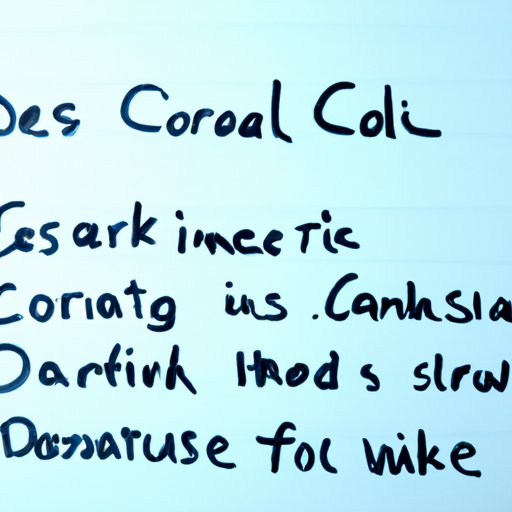 Des Coroal Colc
Cesark imeetic
Coriatg ius .Canhsla
Dartivk Hhods slrw
Dorsaruse foc wike